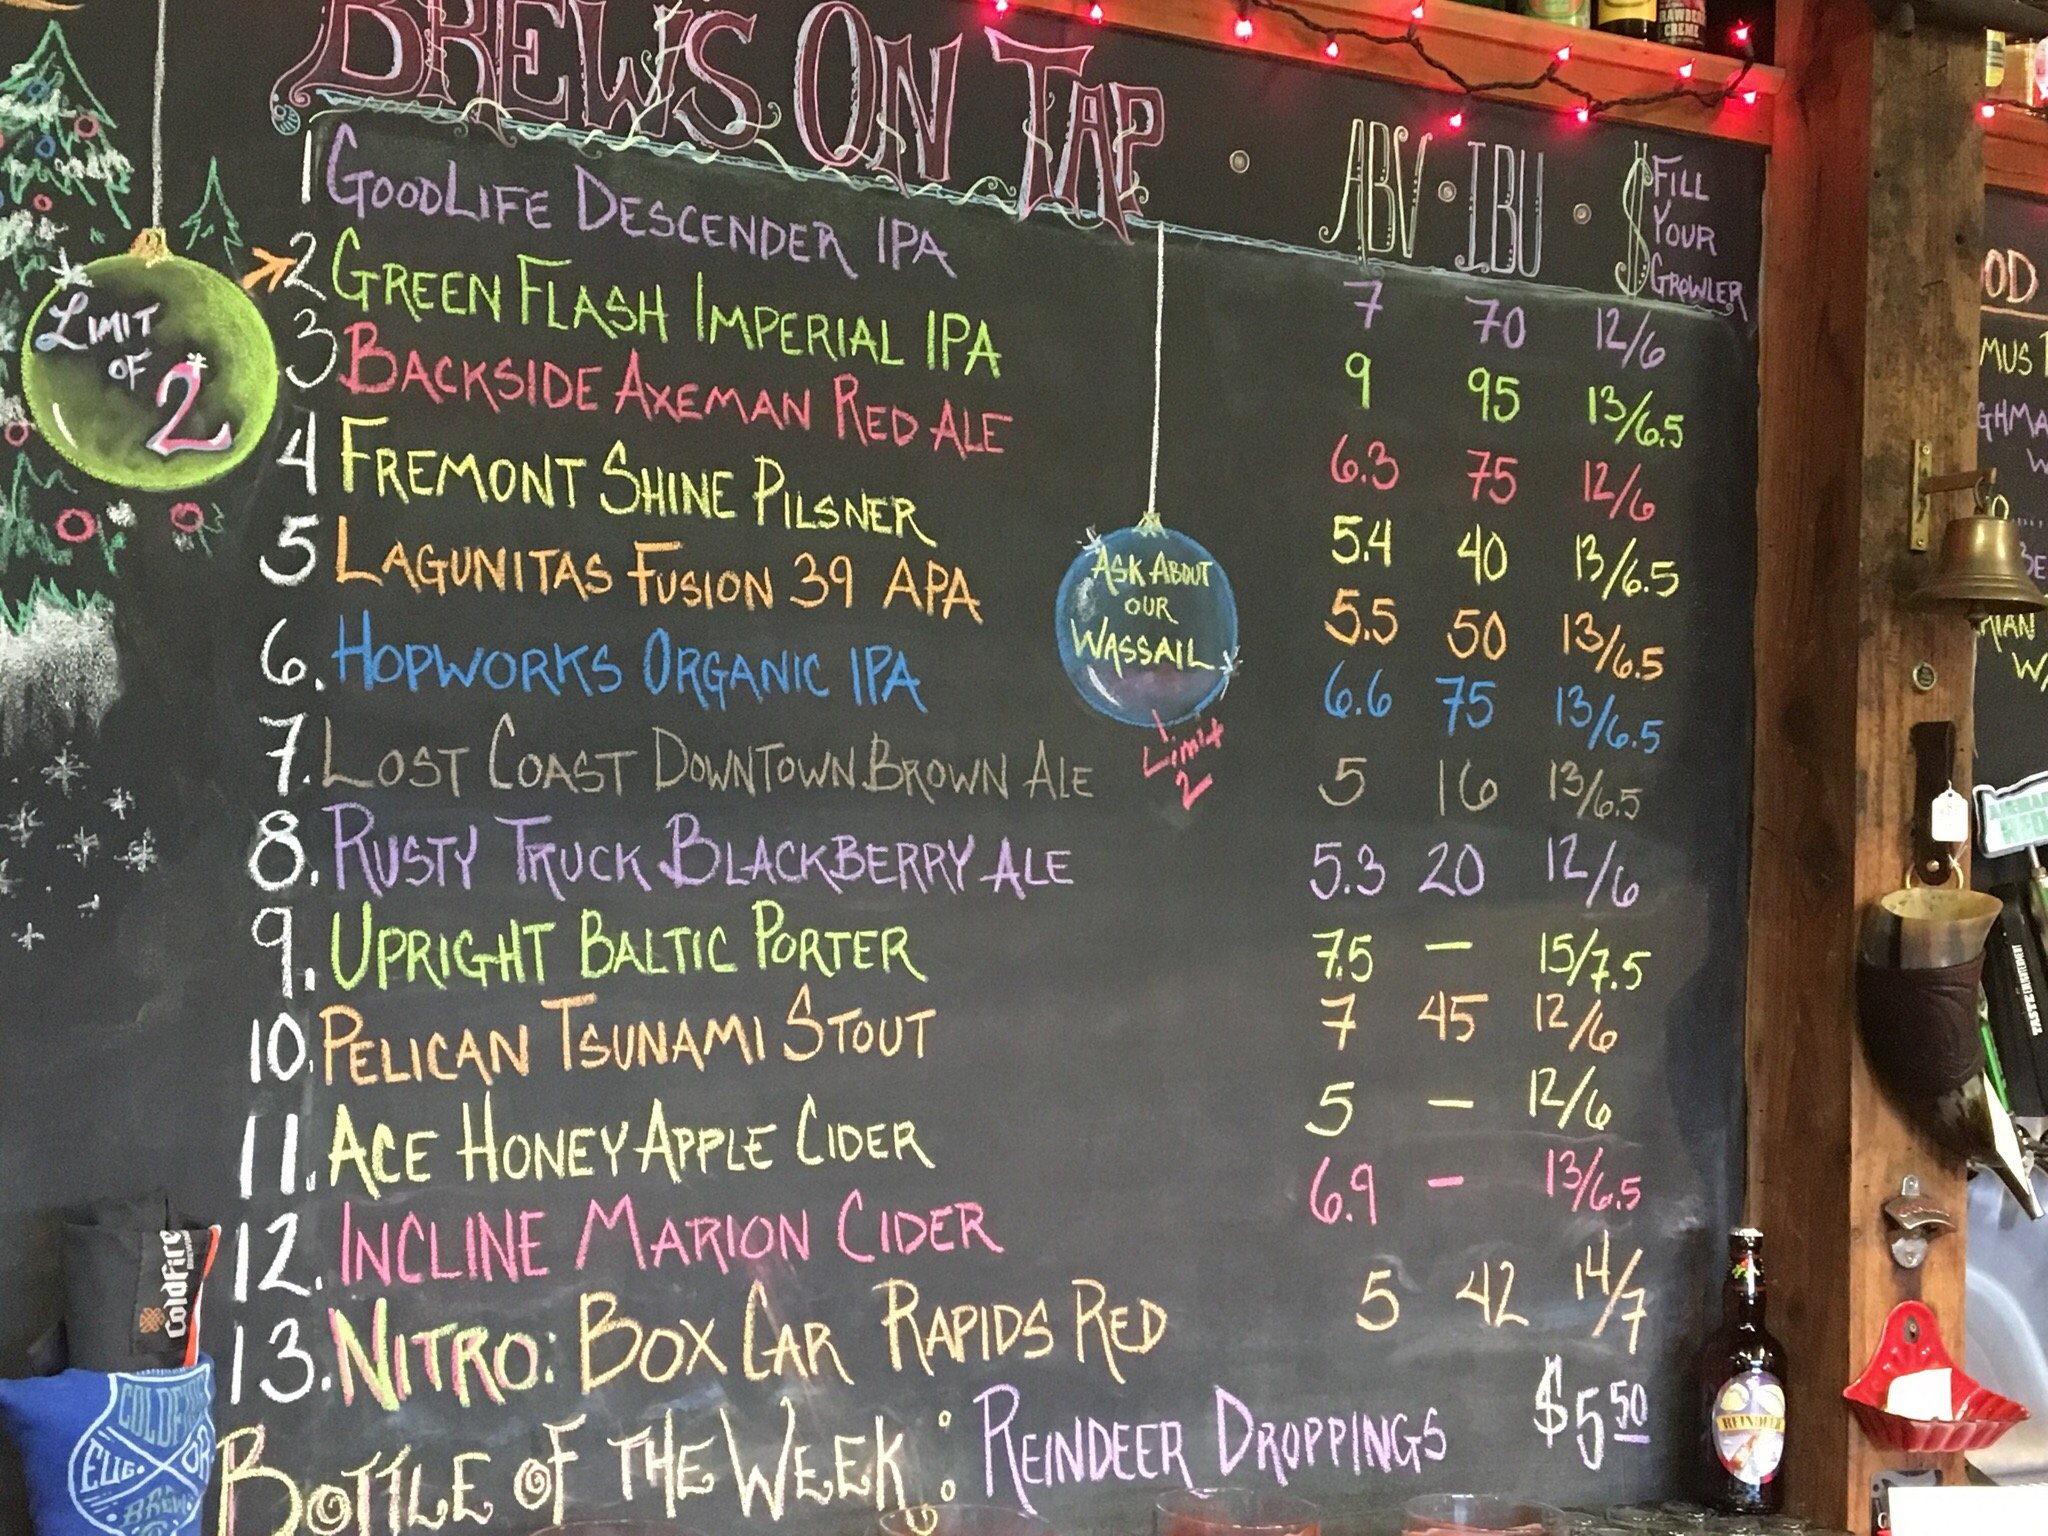 BREWS ON TAP
ABV · IBU · $ FILL YOUR GROWLER
1 GOODLIFE DESCENDER IPA 7 70 12/6
2 GREEN FLASH IMPERIAL IPA 9 95 13/6.5
3 BACKSIDE AXEMAN RED ALE 6.3 75 12/6
4 FREMONT SHINE PILSNER 5.4 40 13/6.5
5 LAGUNITAS FUSION 39 APA 5.5 50 13/6.5
6. HOPWORKS ORGANIC IPA 6.6 75 13/6.5
7. LOST COAST DOWNTOWN BROWN ALE 5 16 13/6.5
8. RUSTY TRUCK BLACKBERRY ALE 5.3 20 12/6
9. UPRIGHT BALTIC PORTER 7.5 — 15/7.5
10. PELICAN TSUNAMI STOUT 7 45 12/6
11. ACE HONEY APPLE CIDER 5 – 12/6
12. INCLINE MARION CIDER 6.9 – 13/6.5
13. NITRO: BOX CAR RAPIDS RED 5 42 14/7
BOTTLE OF THE WEEK: REINDEER DROPPINGS $5.50
LIMIT
OF
2
ASK ABOUT
OUR
WASSAIL
Limit
2
COLDFIRE
EUG. OR
BREW
REINDEER
CREME